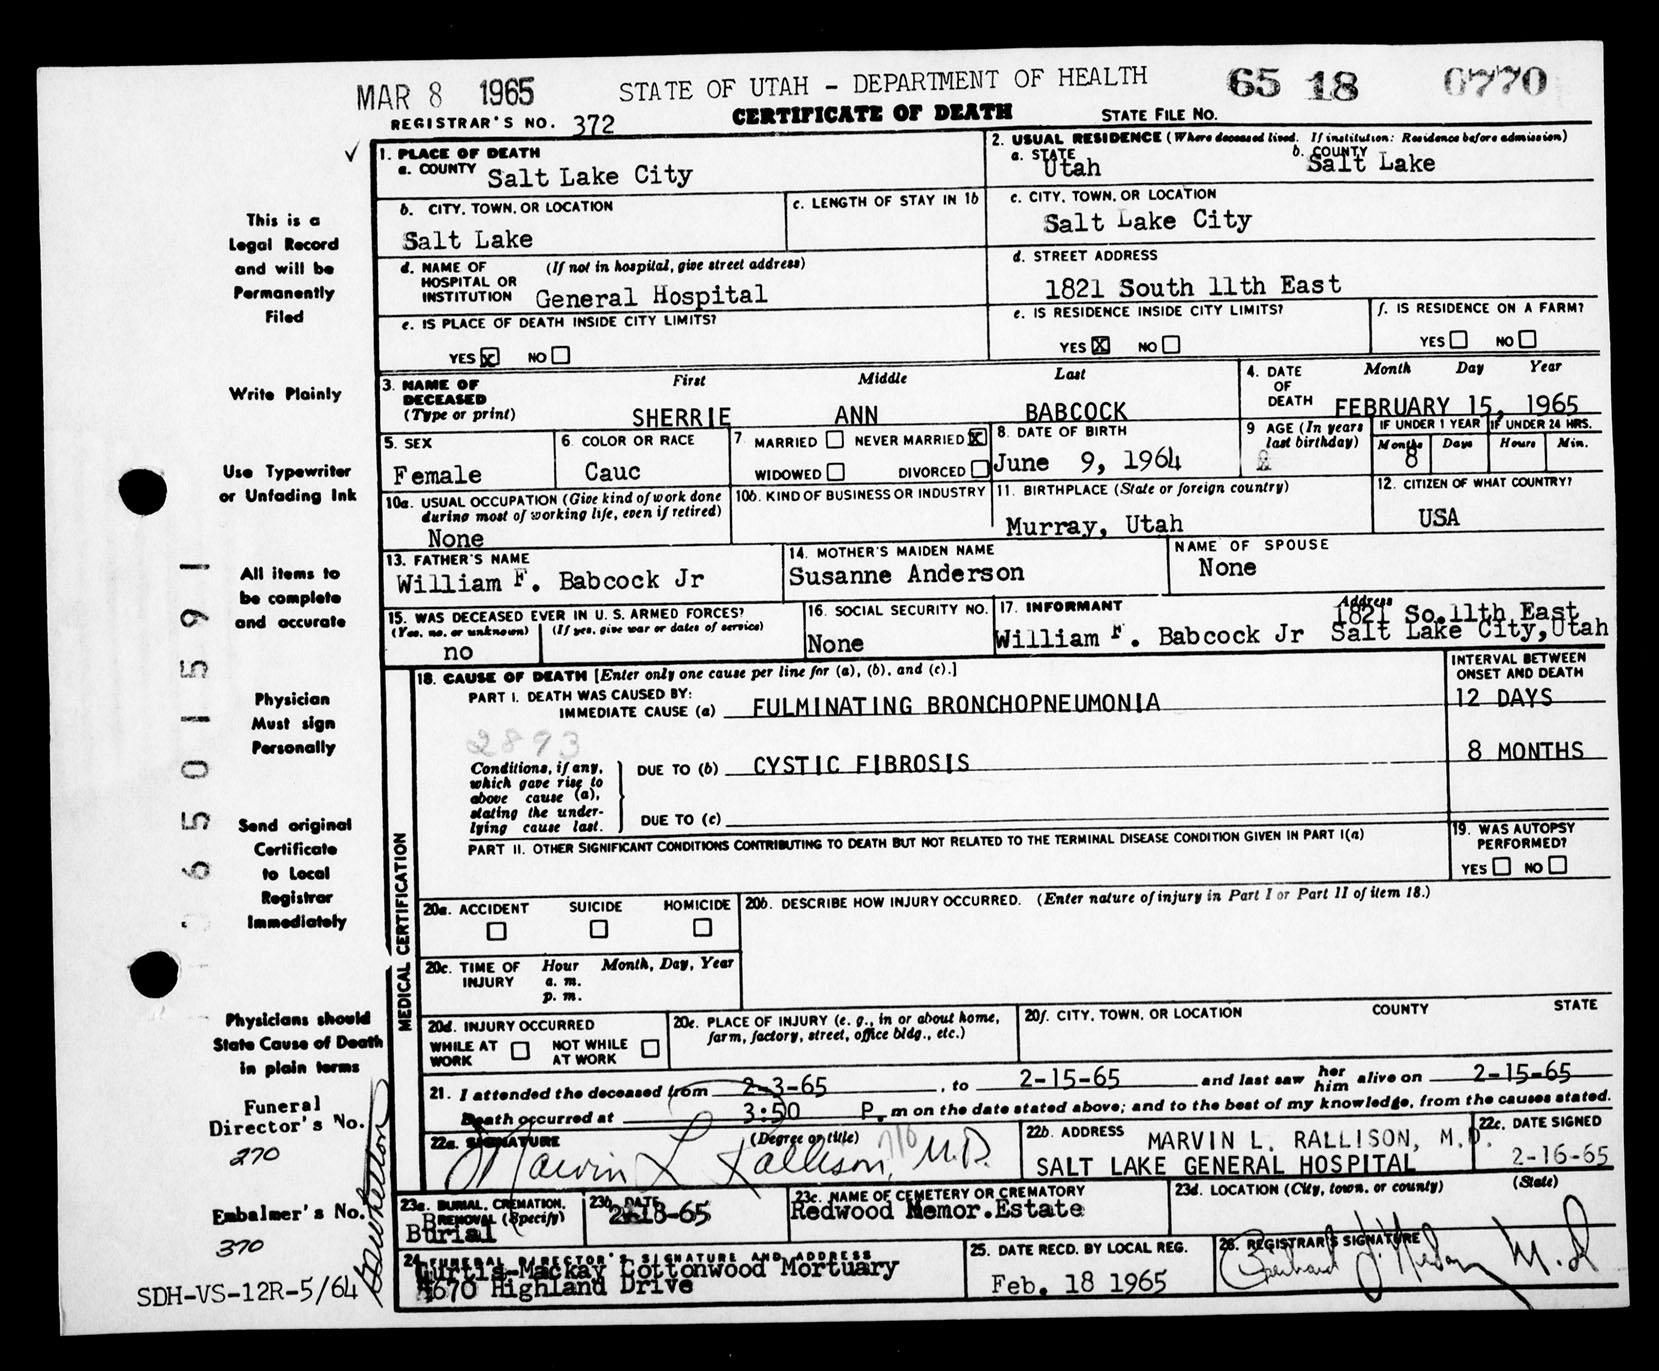 MAR 8 1965 STATE OF UTAH - DEPARTMENT OF HEALTH 65 18 0770
REGISTRAR'S NO. 372 CERTIFICATE OF DEATH STATE FILE NO.
1. PLACE OF DEATH
a. COUNTY Salt Lake City
2. USUAL RESIDENCE (Where deceased lived. If institution: Residence before admission)
a. STATE Utah b. COUNTY Salt Lake
b. CITY, TOWN, OR LOCATION Salt Lake
c. LENGTH OF STAY IN 1b
c. CITY, TOWN, OR LOCATION
Salt Lake City
d. NAME OF HOSPITAL OR INSTITUTION (If not in hospital, give street address)
General Hospital
d. STREET ADDRESS
1821 South 11th East
e. IS PLACE OF DEATH INSIDE CITY LIMITS?
YES X NO
e. IS RESIDENCE INSIDE CITY LIMITS?
YES X NO
f. IS RESIDENCE ON A FARM?
YES NO
3. NAME OF DECEASED (Type or print) First Middle Last
SHERRIE ANN BABCOCK
4. DATE OF DEATH Month Day Year
FEBRUARY 15, 1965
5. SEX
Female
6. COLOR OR RACE
Cauc
7. MARRIED NEVER MARRIED X
WIDOWED DIVORCED
8. DATE OF BIRTH
June 9, 1964
9 AGE (In years last birthday)
IF UNDER 1 YEAR IF UNDER 24 HRS.
Months Days Hours Min.
8
10a. USUAL OCCUPATION (Give kind of work done during most of working life, even if retired)
None
10b. KIND OF BUSINESS OR INDUSTRY
11. BIRTHPLACE (State or foreign country)
Murray, Utah
12. CITIZEN OF WHAT COUNTRY?
USA
13. FATHER'S NAME
William F. Babcock Jr
14. MOTHER'S MAIDEN NAME
Susanne Anderson
NAME OF SPOUSE
None
15. WAS DECEASED EVER IN U. S. ARMED FORCES?
(Yes, no, or unknown) (If yes, give war or dates of service)
no
16. SOCIAL SECURITY NO.
None
17. INFORMANT Address
William F. Babcock Jr 1821 So. 11th East
Salt Lake City, Utah
MEDICAL CERTIFICATION
18. CAUSE OF DEATH [Enter only one cause per line for (a), (b), and (c).]
INTERVAL BETWEEN ONSET AND DEATH
PART I. DEATH WAS CAUSED BY:
IMMEDIATE CAUSE (a) FULMINATING BRONCHOPNEUMONIA 12 DAYS
2893
Conditions, if any, which gave rise to above cause (a), stating the underlying cause last.
DUE TO (b) CYSTIC FIBROSIS 8 MONTHS
DUE TO (c)
PART II. OTHER SIGNIFICANT CONDITIONS CONTRIBUTING TO DEATH BUT NOT RELATED TO THE TERMINAL DISEASE CONDITION GIVEN IN PART I(a)
19. WAS AUTOPSY PERFORMED?
YES NO
20a. ACCIDENT SUICIDE HOMICIDE
20b. DESCRIBE HOW INJURY OCCURRED. (Enter nature of injury in Part I or Part II of item 18.)
20c. TIME OF INJURY Hour Month, Day, Year
a. m.
p. m.
20d. INJURY OCCURRED
WHILE AT WORK NOT WHILE AT WORK
20e. PLACE OF INJURY (e. g., in or about home, farm, factory, street, office bldg., etc.)
20f. CITY, TOWN, OR LOCATION COUNTY STATE
21. I attended the deceased from 2-3-65, to 2-15-65 and last saw her him alive on 2-15-65
Death occurred at 3:50 P. m on the date stated above; and to the best of my knowledge, from the causes stated.
22a. SIGNATURE (Degree or title)
Marvin L. Rallison, M.D.
22b. ADDRESS MARVIN L. RALLISON, M.D.
SALT LAKE GENERAL HOSPITAL
22c. DATE SIGNED
2-16-65
23a. BURIAL, CREMATION, REMOVAL (Specify)
Burial
23b. DATE
2-18-65
23c. NAME OF CEMETERY OR CREMATORY
Redwood Memor. Estate
23d. LOCATION (City, town, or county) (State)
24. FUNERAL DIRECTOR'S SIGNATURE AND ADDRESS
Curtis-Mackay Cottonwood Mortuary
4670 Highland Drive
25. DATE RECD. BY LOCAL REG.
Feb. 18 1965
26. REGISTRAR'S SIGNATURE
M.D
This is a
Legal Record
and will be
Permanently
Filed
Write Plainly
Use Typewriter
or Unfading Ink
All items to
be complete
and accurate
Physician
Must sign
Personally
Send original
Certificate
to Local
Registrar
Immediately
Physicians should
State Cause of Death
in plain terms
Funeral
Director's No.
270
Embalmer's No.
370
SDH-VS-12R-5/64
65501591